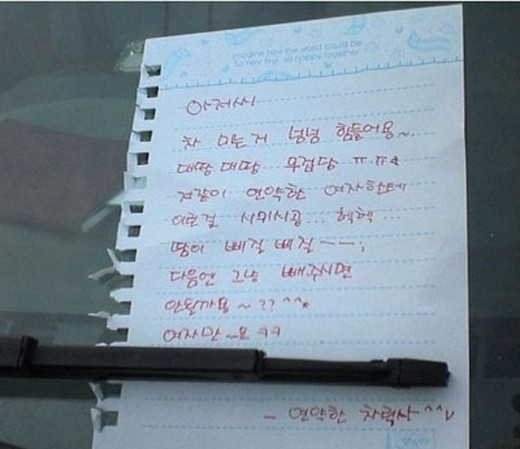 imagine how the world could be
So very fine, so happy together
아저씨
차 미는거 넘넘 힘들어용~..
대땅대땅 무겁당 ㅠ.ㅠ
저같이 연약한 여자한테
이런걸 시키시공... 헥헥...
땀이 삐질삐질 ㅡㅡ;
다음엔 그냥 빼주시면
안될까용~?? ^^*
여자만~요 ㅋㅋ
- 연약한 차력사^^v